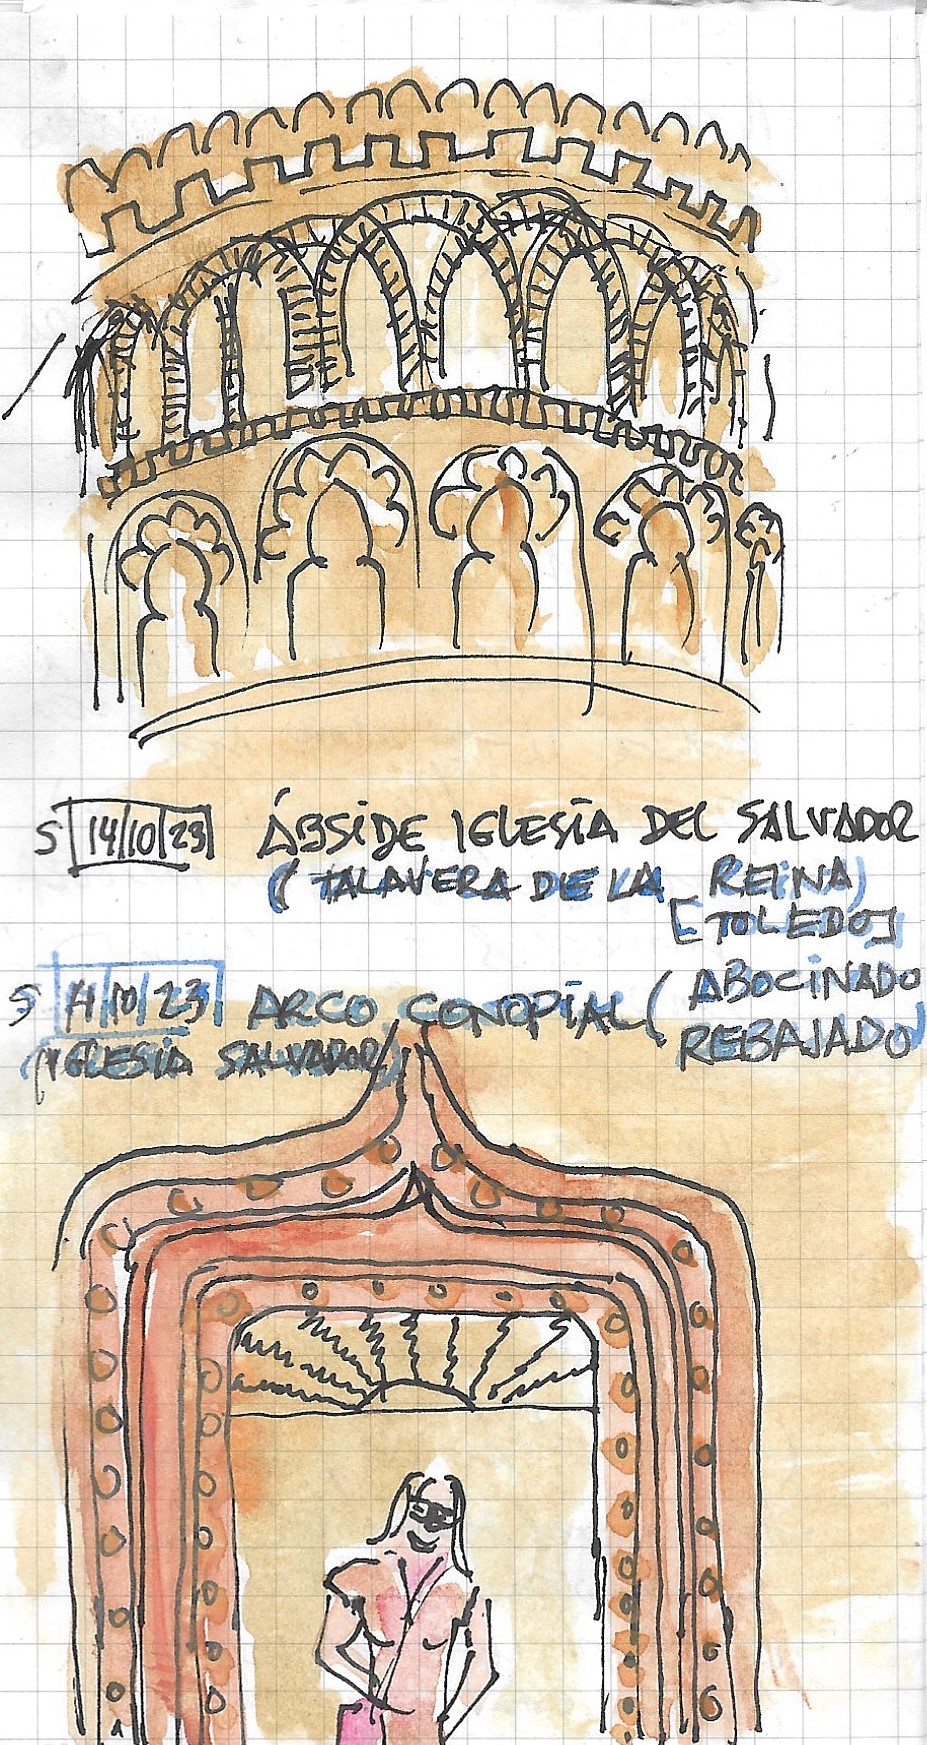 S 14/10/23 ÁBSIDE IGLESIA DEL SALVADOR
(TALAVERA DE LA REINA)
[TOLEDO]
S 14/10/23 ARCO CONOPIAL (ABOCINADO
REBAJADO)
(IGLESIA SALVADOR)